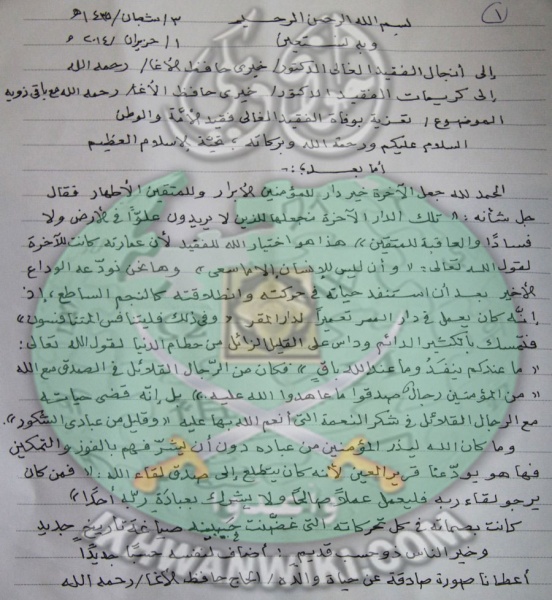 ١
بسم الله الرحمن الرحيم
٣/شعبان/١٤٣٥هـ
وبه نستعين
١/حزيران/٢٠١٤م
إلى أنجال الفقيد الغالي الدكتور/ خيري حافظ الأغا/ رحمه الله
إلى كريمات الفقيد الدكتور/ خيري حافظ الأغا/ رحمه الله مع باقي ذويه
الموضوع/ تعزية بوفاة الفقيد الغالي فقيد الأمة والوطن
السلام عليكم ورحمة الله وبركاته؛ تحية الإسلام العظيم
أما بعد؛:-
الحمد لله جعل الآخرة خير دار للمؤمنين الأبرار وللمتقين الأطهار فقال
جل شأنه: «تلك الدار الآخرة نجعلها للذين لا يريدون علوّاً في الأرض ولا
فساداً والعاقبة للمتقين»/ هذا هو اختيار الله للفقيد لأن عمارته كانت للآخرة
لقول الله تعالى: «وأن ليس للإنسان إلا ما سعى» وها نحن نودّعه الوداع
الأخير بعد أن استنفد حياته في حركته وانطلاقته كالنجم الساطع، إذ
إنّه كان يعمل في دار الممر تعميراً لدار المقر «وفي ذلك فليتنافس المتنافسون»
فتمسك بالكثير الدائم وداس على القليل الزائل من حطام الدنيا لقول الله تعالى:
«ما عندكم ينفَدُ وما عند الله باقٍ» فكان من الرجال القلائل في الصدق مع الله
«من المؤمنين رجالٌ صدقوا ما عاهدوا الله عليه» بل إنّه قضى حياته
مع الرجال القلائل في شكر النعمة التي أنعم الله بها عليه «وقليل من عبادي الشكور».
وما كان الله ليذر المؤمنين من عباده دون أن يشرّفهم بالفوز والتمكين
فها هو يودّعنا قرير العين لأنه كان يتطلع إلى صدق لقاء الله: «فمن كان
يرجو لقاء ربه فليعمل عملاً صالحاً ولا يشرك بعبادة ربه أحداً»
كانت بصماته في كل تحركاته التي جديد
وخير الناس ذو حسب قديم؛ أضاف لنفسه حسباً جديداً
أعطانا صورة صادقة عن حياة والده/ الحاج حافظ الأغا/ رحمه الله
وأعدوا
IKHWANWIKI.COM